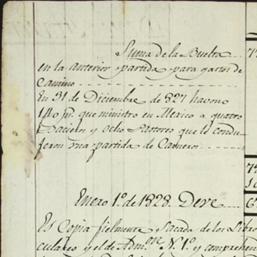 Suma de la Buelta
en la anterior partida para gastos de
Camino
En 31 de Diciembre de 827 havono
que ministro en Mexico a quatro
y ocho Pastores que le condu
jeron una partida de Carneros
Enero 1º de 1828. Deve
Es Copia fielmente sacada de los Libro
y el de Admon Nº 1º y comprehen